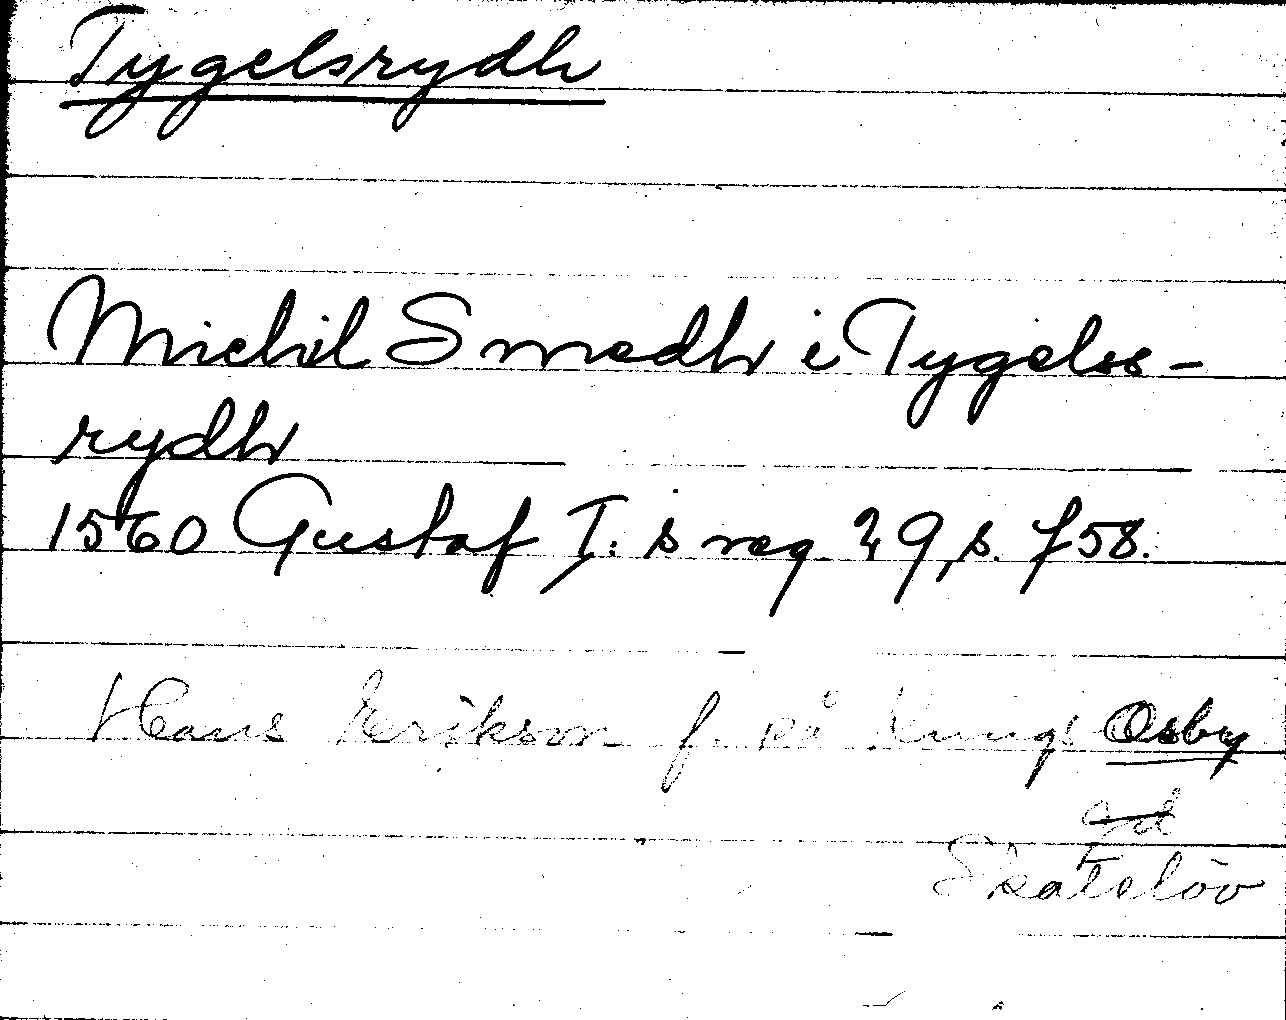 Tygelsrydh
Michil Smedh i Tygels-
rydh
1560 Gustaf I:s reg. 29, s. 758.
Hans Erikson f. på Kungs Osby
Skatelöv